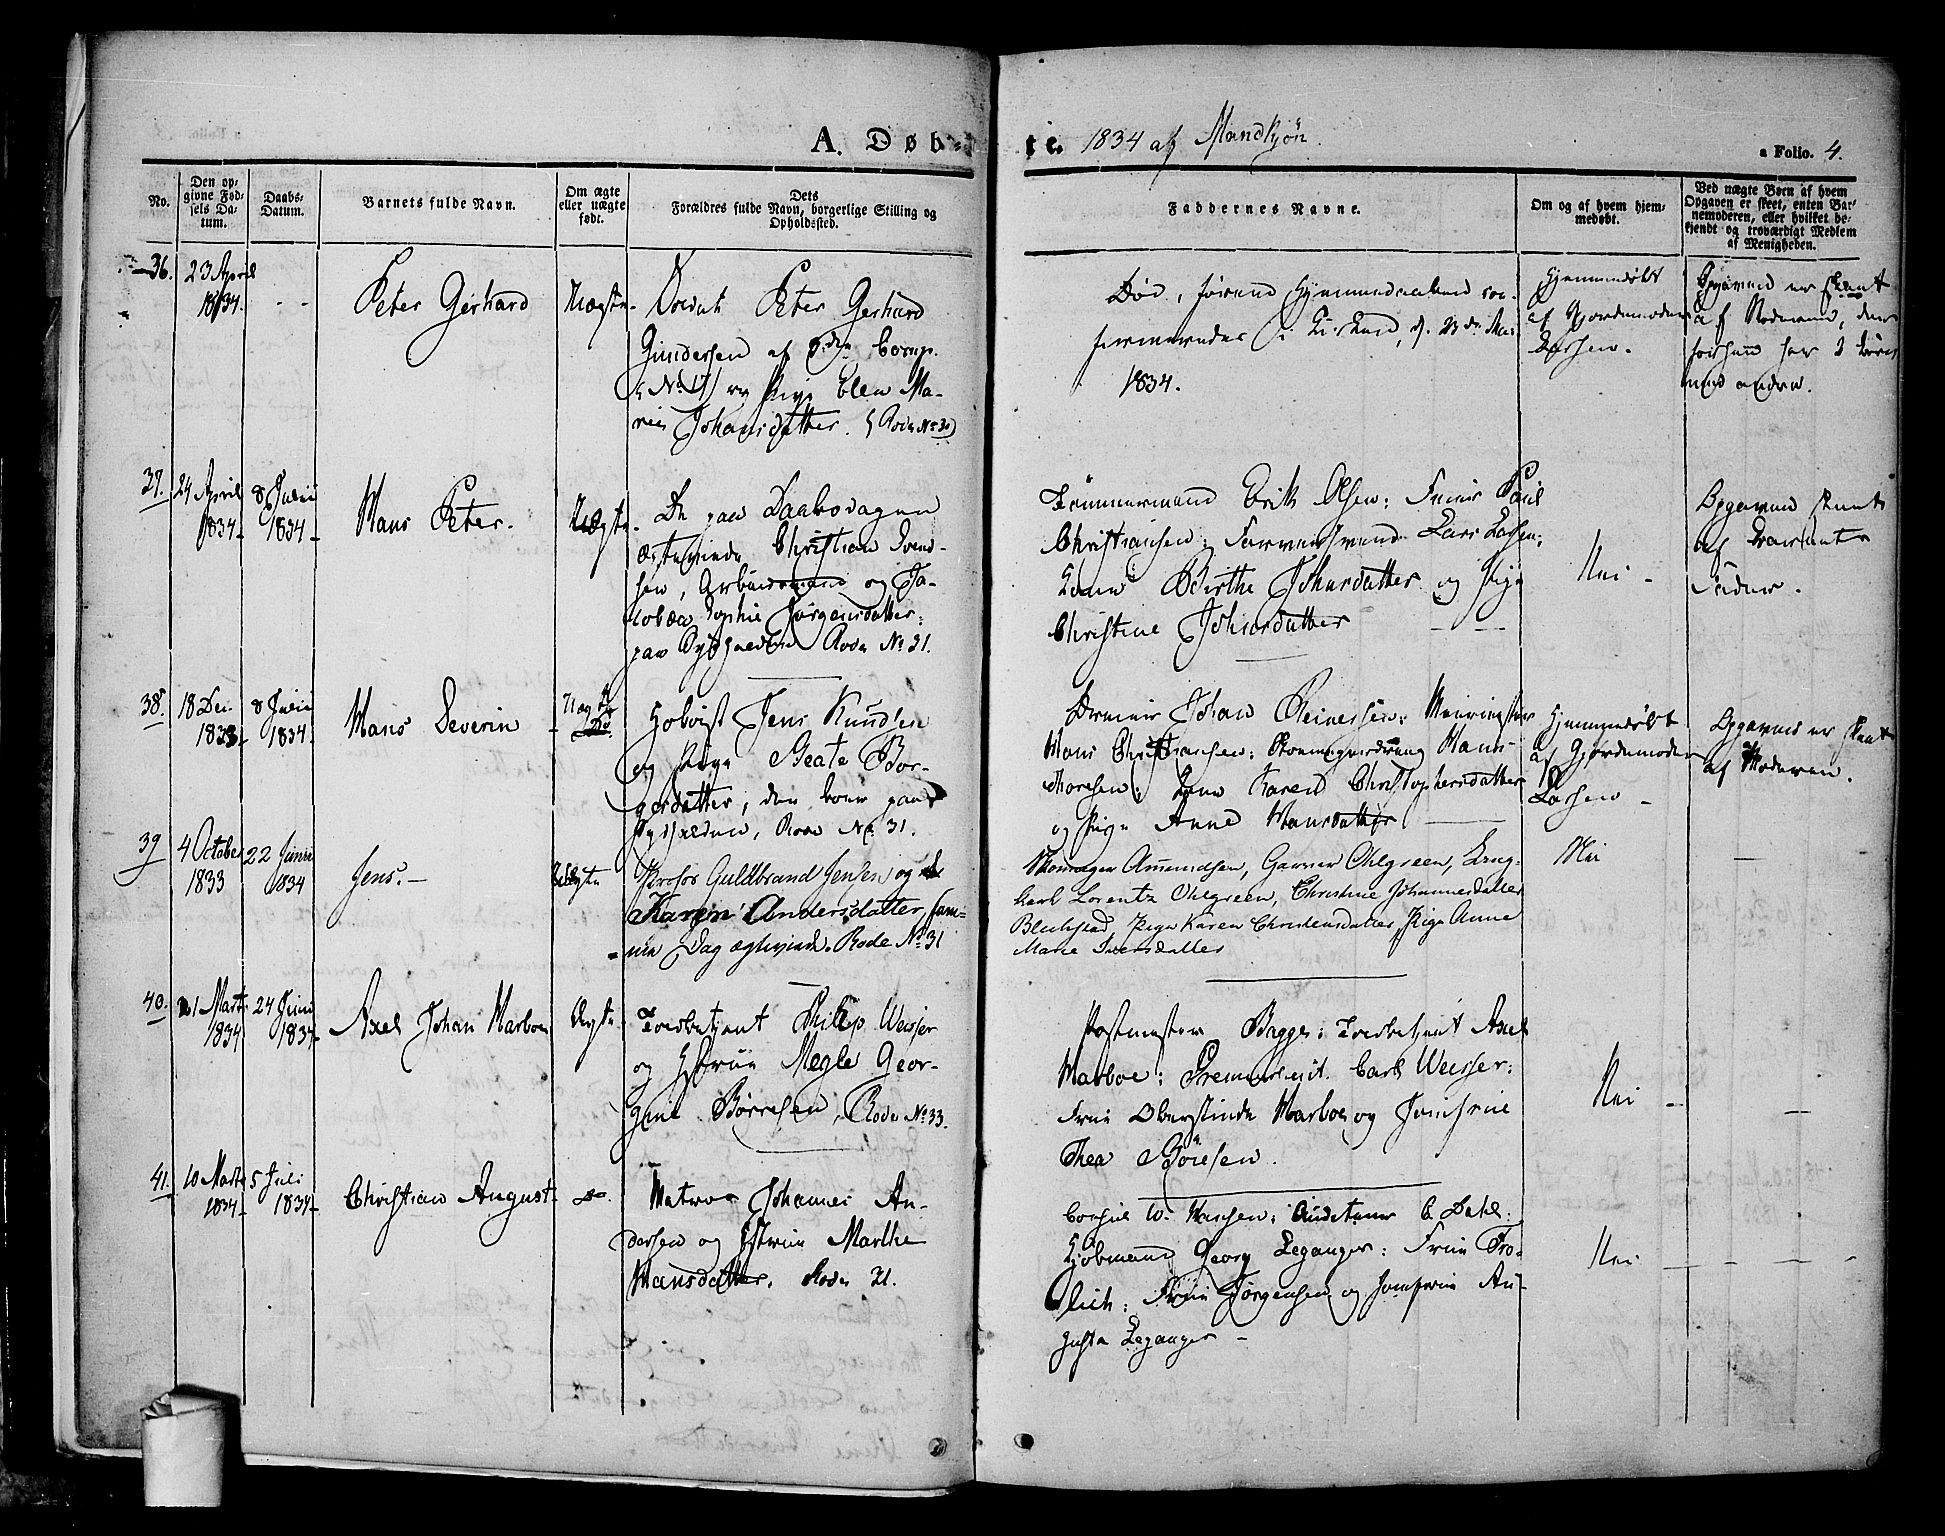 A. Døb-
te. 1834 af Mandkjøn
a Folio. 4.
No.
Den op-
givne Fød-
sels Da-
tum.
Daabs-
Datum.
Barnets fulde Navn.
Om ægte
eller uægte
født.
Dets
Forældres fulde Navn, borgerlige Stilling og
Opholdssted.
Faddernes Navne.
Om og af hvem hjem-
medøbt.
Ved uægte Børn af hvem
Opgaven er skeet, enten Bar-
nemoderen, eller hvilket be-
kjendt og troværdigt Medlem
af Menigheden.
36.
23 April
1834.
Peter Gerhard
Uægte.
Soldat Peter Gerhard
Gundersen af Corps.
No. 17) og Pige Elen Ma-
rie Johansdatter. (Rode No 31)
Død, førend Hjemmedaaben con-
firmeredes i Kirken, d. 23de Mai
1834.
Hjemmedøbt
af Gjordemoder
Larsen.
Opgaven er skeet
af Moderen, der
forhen har 2 Børn
med andre.
37.
24 April
1834
8 Julii
1834
Hans Peter.
Uægte.
De paa Daabsdagen
ægteviede Christian Svend-
sen, Arbeidsmand og Ja-
kobæa Sophie Jørgensdatter;
paa Bydsfjeldene Rode No 31.
Tømmermand Erik Olsen; Poul
Christiansen; Lars Larsen;
Kone Birthe Johnsdatter og Pige
Christine Johnsdatter
Nei
Opgaven skeet
af
38.
18 Dec.
1833
8 Julii
1834.
Hans Severin
Uægte
Do.
Jens Knudsen
og Pige Beate Bor-
gersdatter, der boer paa
Rode No. 31.
Johan Reinertsen;
Hans Christiansen; Hans
Thoresen; Kone Karen Christophersdatter
og Pige Anne Hansdatter
Hjemmedøbt
af Gjordemoder
Larsen
Opgaven er skeet
af Moderen.
39
4 October
1833
22 Juni
1834
Jens.
Uægte
Profos Guldbrand Jensen og
Karen Andersdatter, sam-
me Dag ægteviede. Rode No 31
Skomager Amundsen, Garver Ohlgreen,
Carl Lorentz Ohlgreen, Christine Johannesdatter
Blekstad, Pige Karen Christensdatter, Pige Anne
Marie Iversdatter
Nei
40.
21 Marts
1834
24 Juni
1834
Axel Johan Marboe
Ægte
Toldbetjent Philip Weisser
og Hustrue Megle Geor-
gine Børresen, Rode No. 33
Postmester Bagge; Toldbetjent Axel
Marboe; Premierlieut. Carl Weisser;
Frue Oberstinde Marboe og Jomfrue
Thea Børesen.
Nei
41.
10 Marts
1834
5 Juli
1834
Christian August
do.
Matros Johannes An-
dersen og Hustrue Marthe
Hansdatter. Rode 31.
W. Hansen; C. Dahl;
Kjøbmand Georg Leganger; Frue Frø-
lich; Frue Jørgensen og Jomfrue Au-
gusta Leganger
Nei